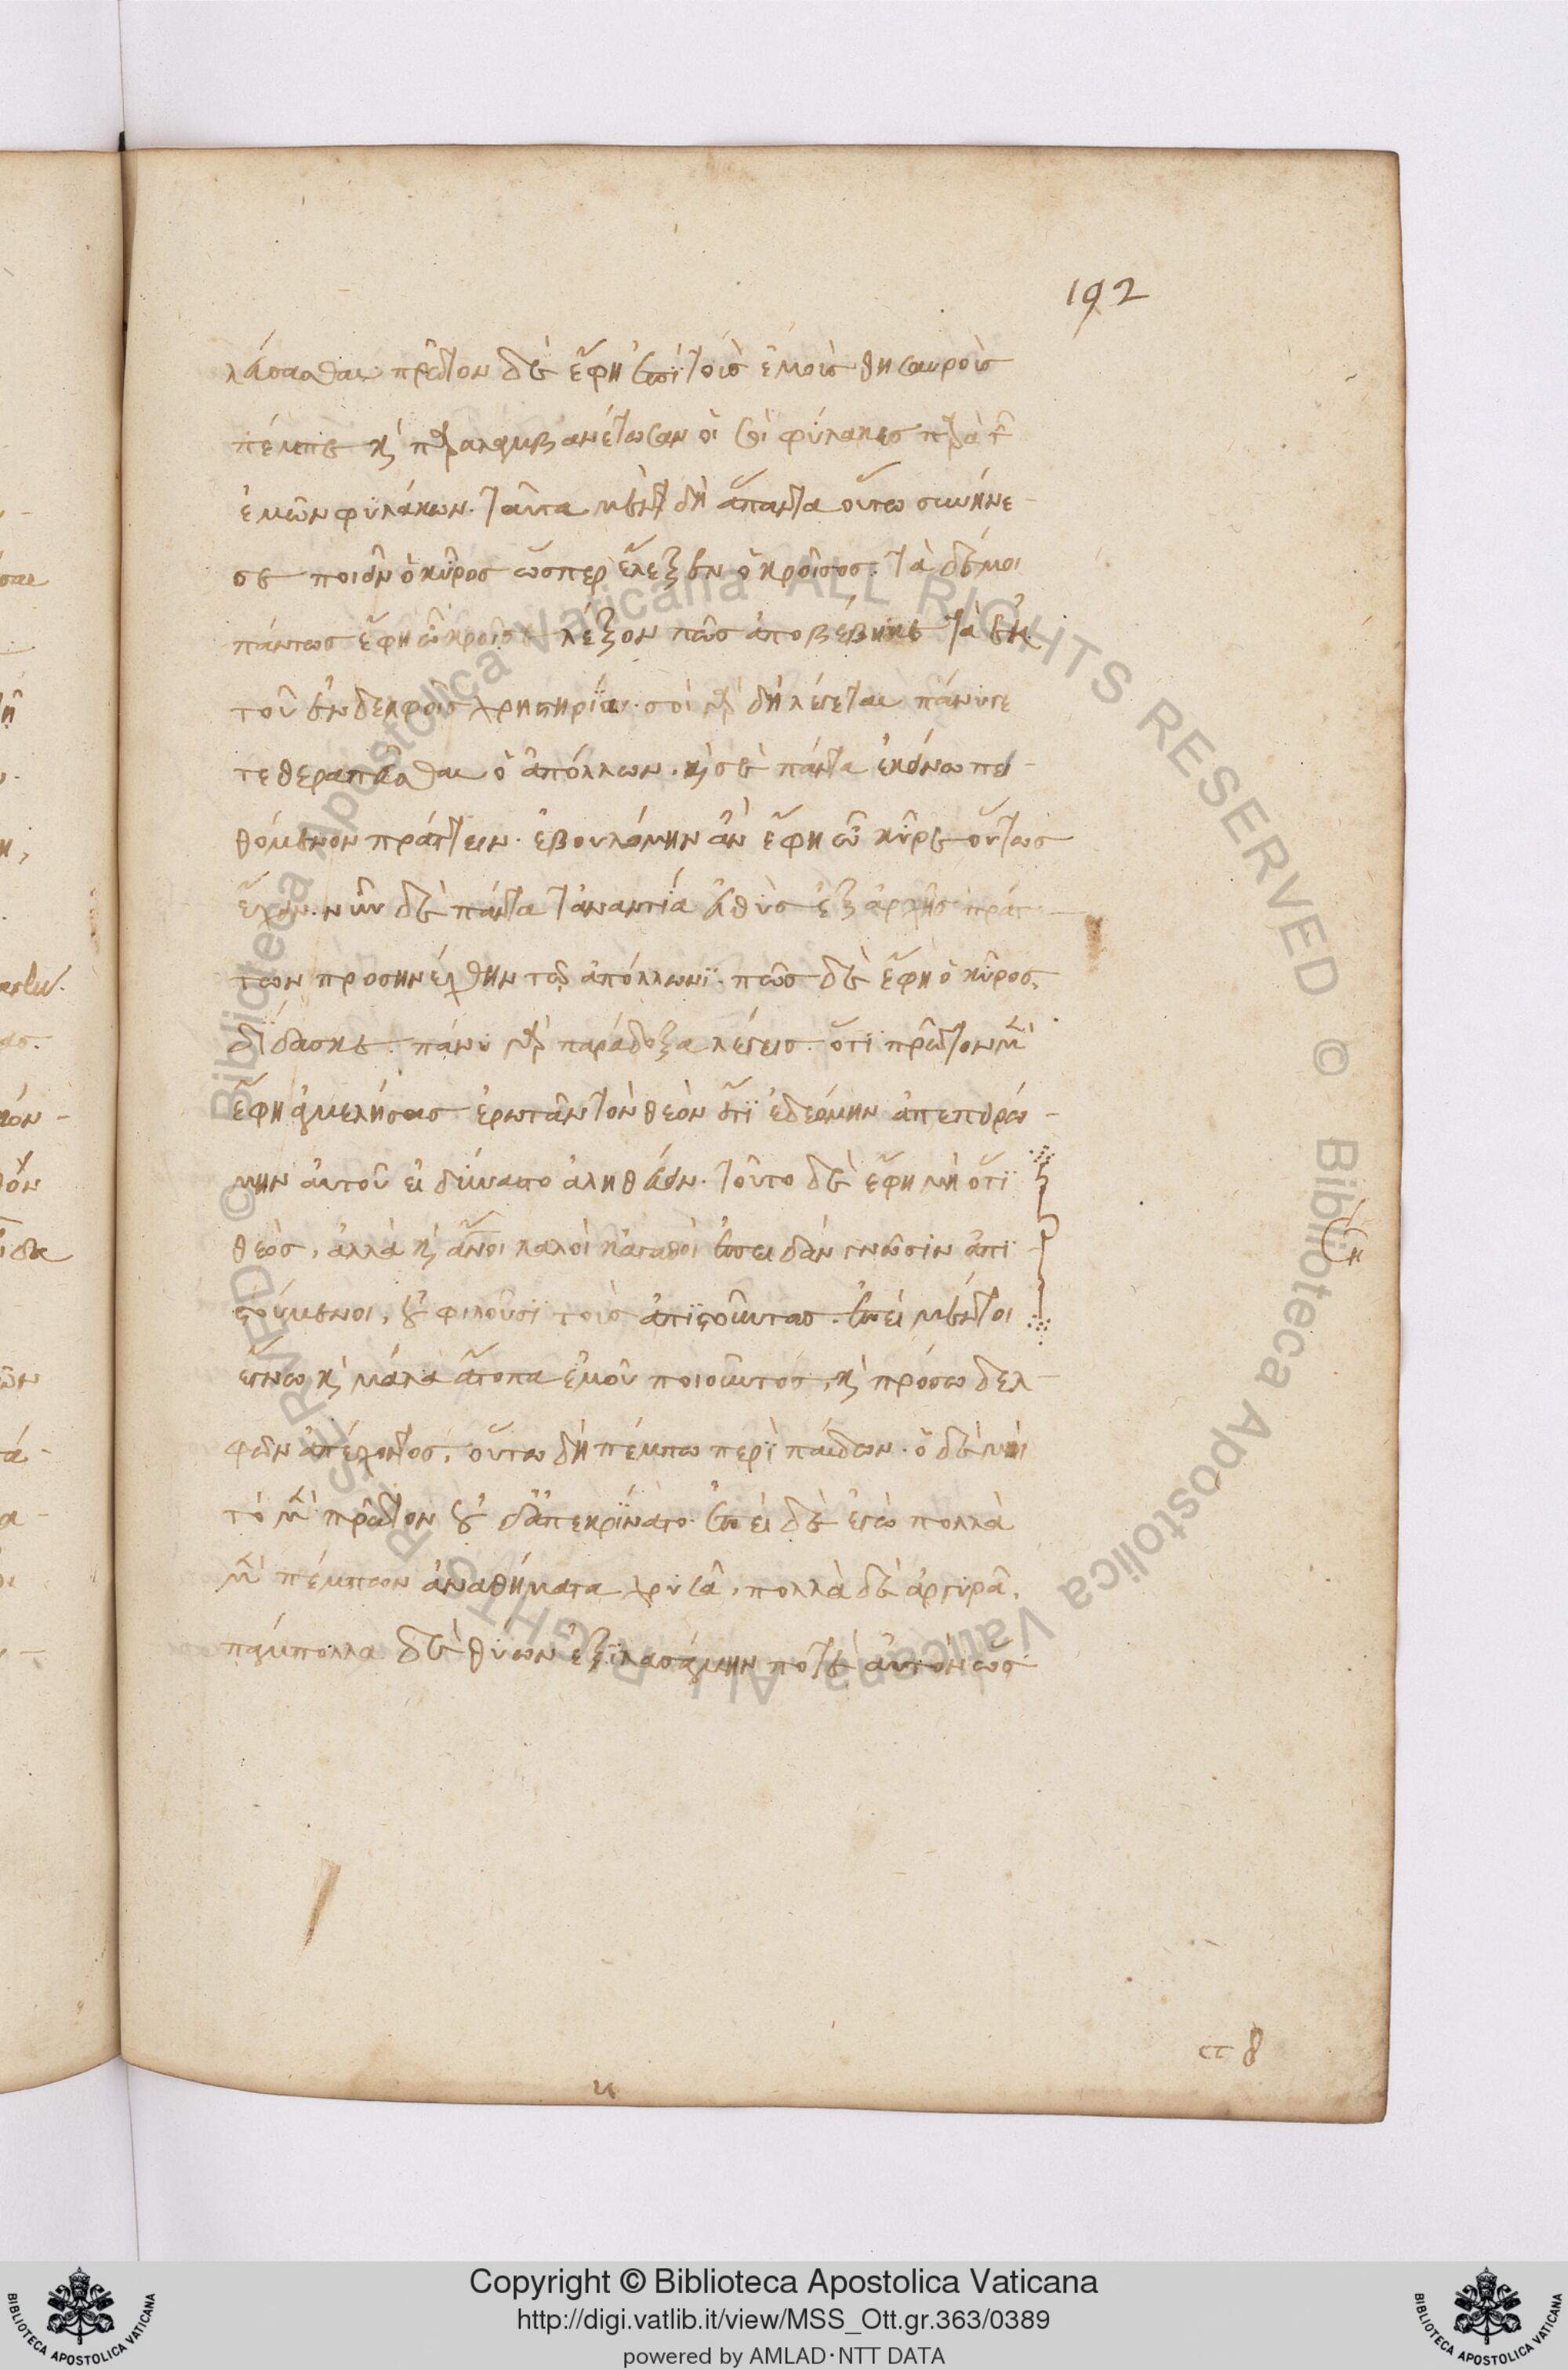 192
λεύσασθαι πρῶτον δὲ ἔφη ἐπὶ τοὺς ἐμοὺς θησαυροὺς
πέμπε κỳ παραλαμβανέτωσαν οἱ σοὶ φύλακες παρὰ τ
ἐμῶν φυλάκων. ταῦτα μὲν δὴ ἅπαντα οὕτω συνήνε-
σε ποιεῖν ὁ κῦρος ὥσπερ ἔλεξεν ὁ κροῖσος. τὰ δέ μοι
πάντως ἔφη ὦ κροῖσε λέξον πῶς ἀποβέβηκε τὰ ἐκ
τοῦ ἐν δελφοῖς χρηστηρίου. σοὶ γὰρ δὴ λέγεται πάνυ γε
τεθεραπεῦσθαι ὁ ἀπόλλων. καὶ σὲ πάντα ἐκείνω πει-
θόμενον πράττειν. ἐβουλόμην ἂν ἔφη ὦ κῦρε οὕτως
ἔχειν. νῦν δὲ πάντα τἀναντία εὐθὺς ἐξ ἀρχῆς πράτ-
των προσηνέχθην τῶ ἀπόλλωνϊ. πῶς δὲ ἔφη ὁ κῦρος,
δίδασκε. πάνυ γὰρ παράδοξα λέγεις. ὅτι πρῶτον μὲν
ἔφη ἀμελήσας ἐρωτᾶν τὸν θεὸν εἴ τι ἐδεόμην ἀπεπειρώ-
μην αὐτοῦ εἰ δύναιτο ἀληθεύειν. τοῦτο δὲ ἔφη μὴ ὅτι
θεὸς, ἀλλὰ καὶ ἄνοι καλοὶ κἀγαθοὶ ἐπειδὰν γνῶσιν ἀπι
στούμενοι, οὐ φιλοῦσϊ τοὺς ἀπιστοῦντας. ἐπεὶ μέντοι
ἔγνω καὶ μάλα ἄτοπα ἐμοῦ ποιοῦντος, καὶ πρόσω δελ-
φῶν ἀπέχοντος, οὕτω δὴ πέμπω περὶ παίδων. ὁ δέ μοι
τὸ μὲν πρῶτον οὐδ' ἀπεκρίνατο. ἐπεὶ δὲ ἐγὼ πολλὰ
μὲν πέμπων ἀναθήματα χρυσᾶ, πολλὰ δὲ ἀργυρᾶ,
πάμπολλα δὲ θύων ἐξιλασάμην ποτὲ αὐτὸν ὡς
Copyright © Biblioteca Apostolica Vaticana
http://digi.vatlib.it/view/MSS_Ott.gr.363/0389
powered by AMLAD·NTT DATA